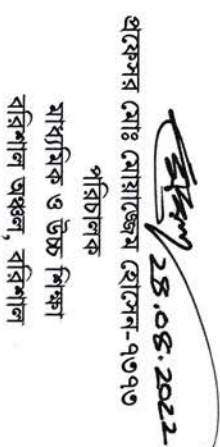 28.08.2022
প্রফেসর মোঃ মোয়াজ্জেম হোসেন-৭৩৭৩
পরিচালক
মাধ্যমিক ও উচ্চ শিক্ষা
বরিশাল অঞ্চল, বরিশাল